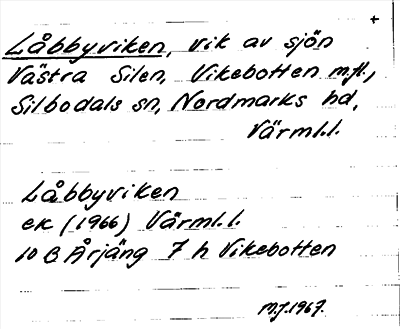 +
Låbbyviken, vik av sjön
Västra Silen, Vikebotten m.fl.,
Silbodals sn, Nordmarks hd,
Värml.l.
Låbbyviken
ek (1966) Värml.l.
10 B Årjäng 7 h Vikebotten
M.J.1967.